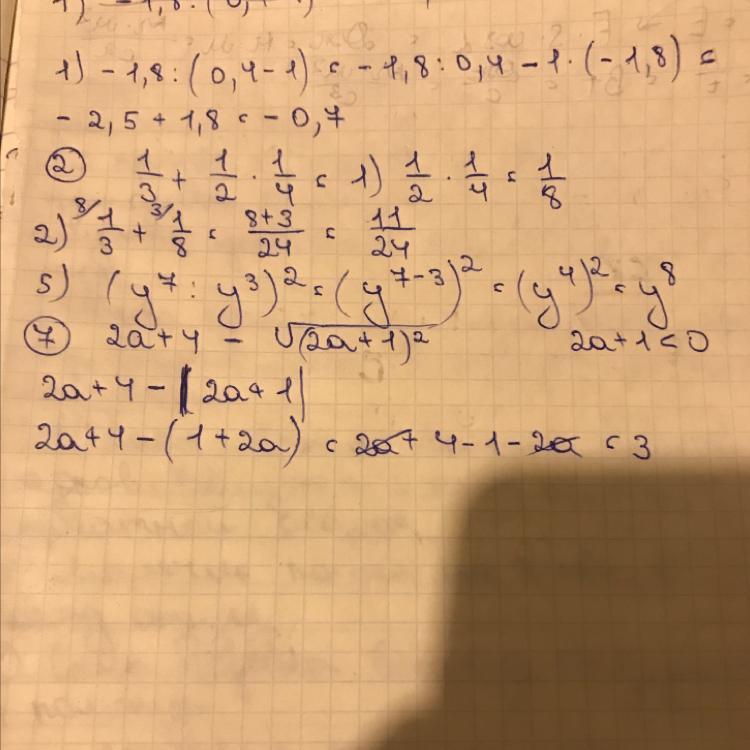 1) - 1,8 : (0,4 - 1) = - 1,8 : 0,4 - 1 · (- 1,8) =
- 2,5 + 1,8 = - 0,7
② 1/3 + 1/2 · 1/4 = 1) 1/2 · 1/4 = 1/8
2) 8/ 1/3 + 3/ 1/8 = 8+3/24 = 11/24
5) (y⁷ : y³)² = (y⁷⁻³)² = (y⁴)² = y⁸
⑦ 2a + 4 - √(2a + 1)² 2a + 1 < 0
2a + 4 - | 2a + 1 |
2a + 4 - (1 + 2a) = 2a + 4 - 1 - 2a = 3